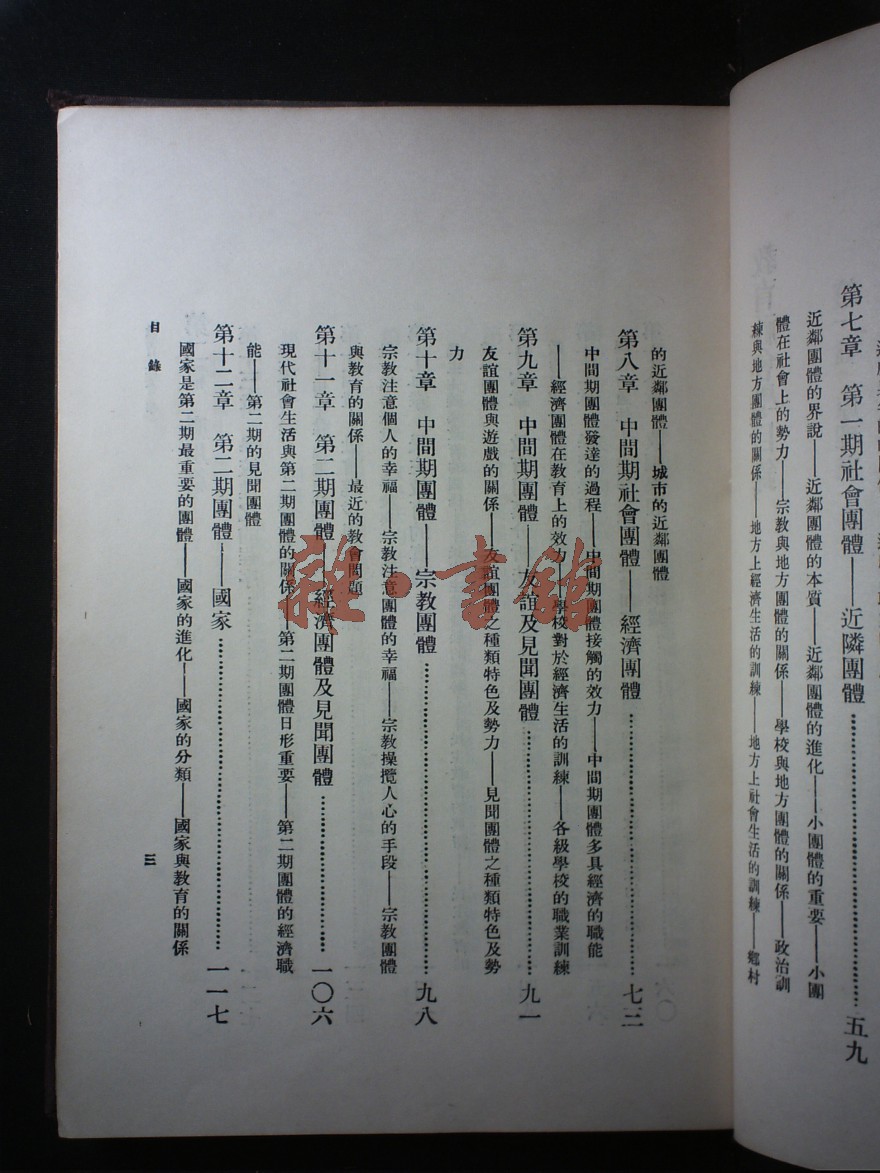 第七章　第一期社會團體——近隣團體…………五九
近鄰團體的界說——近鄰團體的本質——近鄰團體的進化——小團體的重要——小團
體在社會上的勢力——宗教與地方團體的關係——學校與地方團體的關係——政治訓
練與地方團體的關係——地方上經濟生活的訓練——地方上社會生活的訓練——鄉村
的近鄰團體——城市的近鄰團體
第八章　中間期社會團體——經濟團體…………七三
中間期團體發達的過程——中間期團體接觸的效力——中間期團體多具經濟的職能
——經濟團體在教育上的效力——學校對於經濟生活的訓練——各級學校的職業訓練
第九章　中間期團體——友誼及見聞團體…………九一
友誼團體與遊戲的關係——友誼團體之種類特色及勢力——見聞團體之種類特色及勢
力
第十章　中間期團體——宗教團體…………九八
宗教注意個人的幸福——宗教注意團體的幸福——宗教操攬人心的手段——宗教團體
與教育的關係——最近的教會問題
第十一章　第二期團體——經濟團體及見聞團體…………一〇六
現代社會生活與第二期團體的關係——第二期團體日形重要——第二期團體的經濟職
能——第二期的見聞團體
第十二章　第二期團體——國家…………一一七
國家是第二期最重要的團體——國家的進化——國家的分類——國家與教育的關係
目錄
三
雜·書館